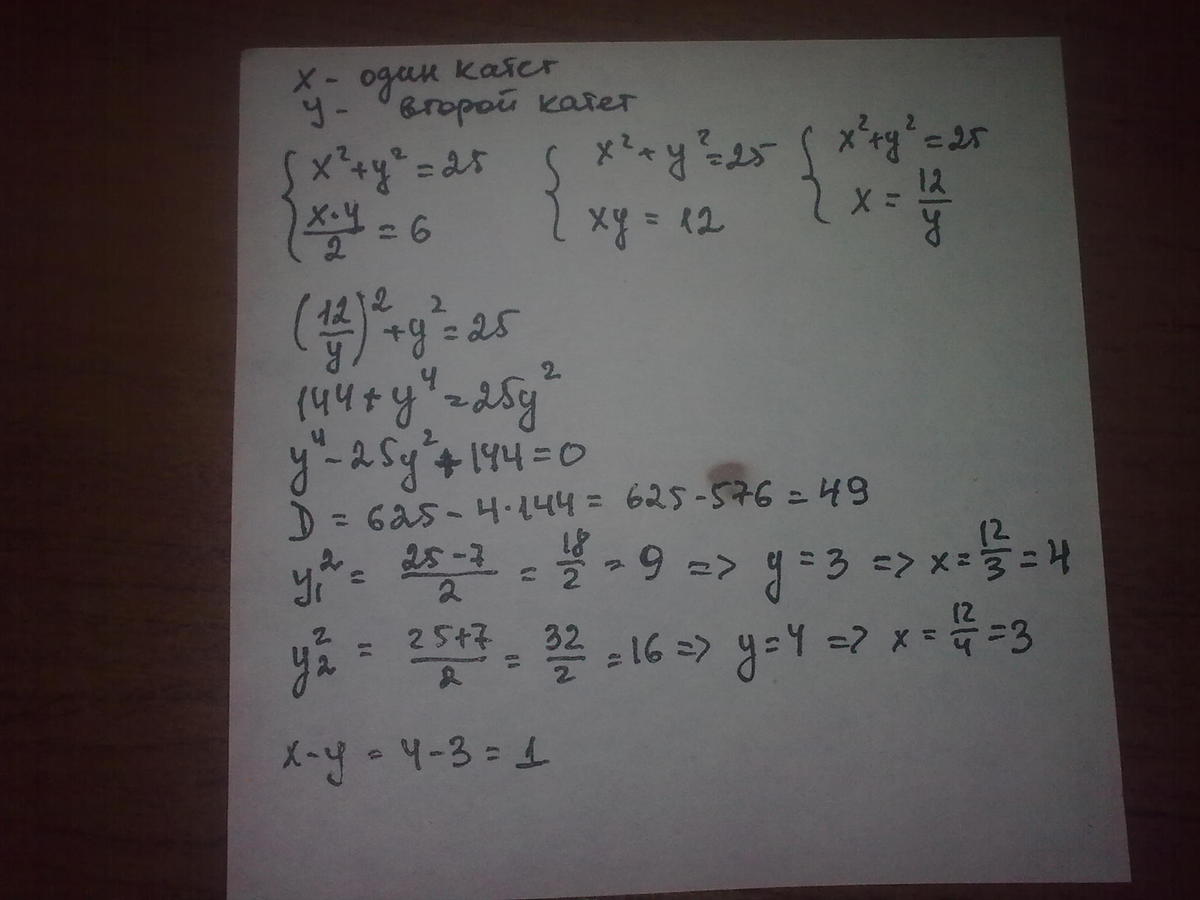 x - один катет
y - второй катет
{ x²+y²=25 { x²+y²=25 { x²+y²=25
x·y/2 = 6 xy = 12 x = 12/y
(12/y)²+y²=25
144+y⁴=25y²
y⁴-25y²+144=0
D = 625-4·144= 625-576=49
y₁² = 25-7/2 = 18/2 = 9 => y=3 => x=12/3=4
y₂² = 25+7/2 = 32/2 =16=> y=4 => x=12/4=3
x-y = 4-3=1